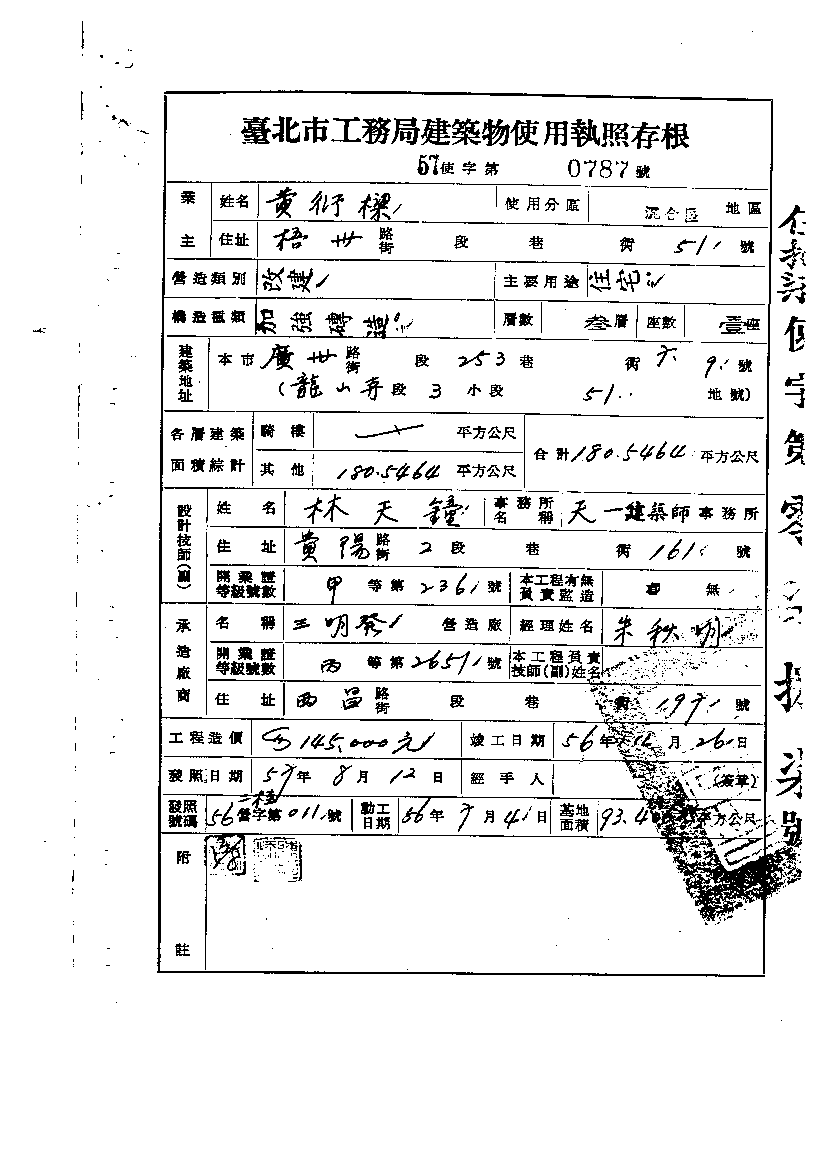 臺北市工務局建築物使用執照存根
57使字第 0787號
業主 姓名 黃衍樑 使用分區 混合區 地區
住址 梧卅 路街 段 巷 衖 51 號
營造類別 改建 主要用途 住宅
構造種類 加強磚造 層數 叁層 座數 壹座
建築地址 本市 廣卅 路街 段 253 巷 衖 9 號
(龍山寺段 3 小段 51 地號)
各層建築面積綜計 騎樓 平方公尺 合計 180.5464 平方公尺
其他 180.5464 平方公尺
設計技師(副) 姓名 林天鐘 事務所名稱 天一建築師事務所
住址 貴陽 路街 2段 巷 衖 161 號
開業證等級號數 甲等第 2361 號 本工程有無負責監造 無
承造廠商 名稱 王明發 營造廠 經理姓名 朱秋明
開業證等級號數 丙等第 2651 號 本工程負責技師(副)姓名
住址 西昌 路街 段 巷 衖 號
工程造價 145,000元 竣工日期 56年12月26日
發照日期 57年8月12日 經手人 (簽章)
發照號碼 56營字第011號 動工日期 56年7月4日 基地面積 93.4 平方公尺
附註
使字第零 捌柒號